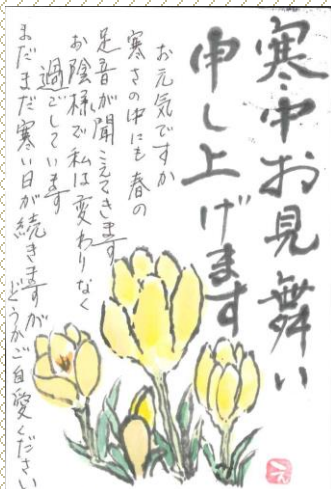 寒中お見舞い
申し上げます
お元気ですか
寒さの中にも春の
足音が聞こえてきます
お陰様で私は変わりなく
過ごしています
まだまだ寒い日が続きますが
どうかご自愛ください